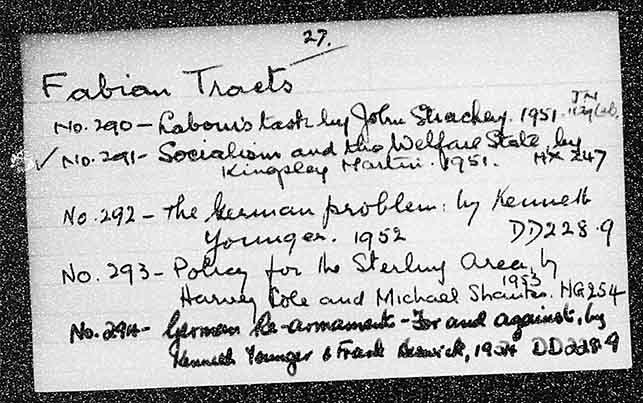 27.
Fabian Tracts
No. 290 – Labour's task by John Strachey. 1951. JN
✓ No. 291 – Socialism and the Welfare State, by
Kingsley Martin. 1951. HX 247
No. 292 – The German problem: by Kenneth
Younger. 1952 DD228.9
No. 293 – Policy for the Sterling Area, by
Harvey Cole and Michael Shanks. 1953 HG254
No. 294 – German Re-armament – For and against, by
Kenneth Younger & Frank Beswick, 1954 DD228.9